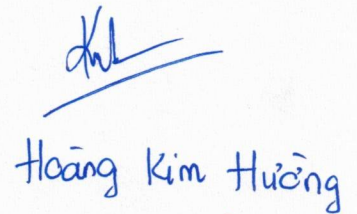 Hoàng Kim Hường